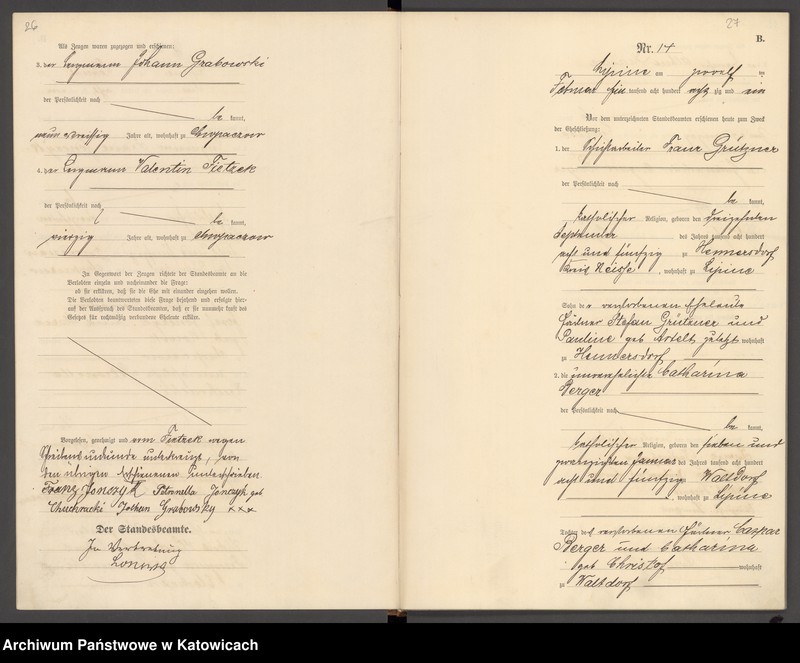 26
Als Zeugen waren zugezogen und erschienen:
3. der Bergmann Johann Grabowski
der Persönlichkeit nach
be kannt,
neun u dreissig Jahre alt, wohnhaft zu Chropaczow
4. der Bergmann Valentin Fietzek
der Persönlichkeit nach
be kannt,
vierzig Jahre alt, wohnhaft zu Chropaczow
In Gegenwart der Zeugen richtete der Standesbeamte an die
Verlobten einzeln und nacheinander die Frage:
ob sie erklären, daß sie die Ehe mit einander eingehen wollen.
Die Verlobten beantworteten diese Frage bejahend und erfolgte hier-
auf der Ausspruch des Standesbeamten, daß er sie nunmehr kraft des
Gesetzes für rechtmäßig verbundene Eheleute erkläre.
Vorgelesen, genehmigt und vom Fietzek wegen
Schreibensunkunde unterkreuzt, von
den übrigen Erschienenen unterschrieben
Franz Jonczyk Petronella Jonczyk geb
Chuchracki Johan Grabowsky xxx
Der Standesbeamte.
In Vertretung
27
B.
Nr. 14
Lipine am zwölf ten
Februar ein tausend acht hundert acht zig und ein
Vor dem unterzeichneten Standesbeamten erschienen heute zum Zweck
der Eheschließung:
1. der Schichtarbeiter Franz Grützner
der Persönlichkeit nach
be kannt,
katholischer Religion, geboren den dreizehnten
September des Jahres tausend acht hundert
acht und fünfzig zu Hennersdorf
Kreis Neisse, wohnhaft zu Lipine
Sohn der verstorbenen Eheleute
Gärtner Stefan Grützner und
Pauline geb Artelt zuletzt wohnhaft
zu Hennersdorf
2. die unverehelichte Catharina
Berger
der Persönlichkeit nach
be kannt,
katholischer Religion, geboren den sieben und
zwanzigsten Januar des Jahres tausend acht hundert
acht und fünfzig Waltdorf
, wohnhaft zu Lipine
Tochter des verstorbenen Gärtner Caspar
Berger und Catharina
geb Christof wohnhaft
zu Waltdorf
Archiwum Państwowe w Katowicach